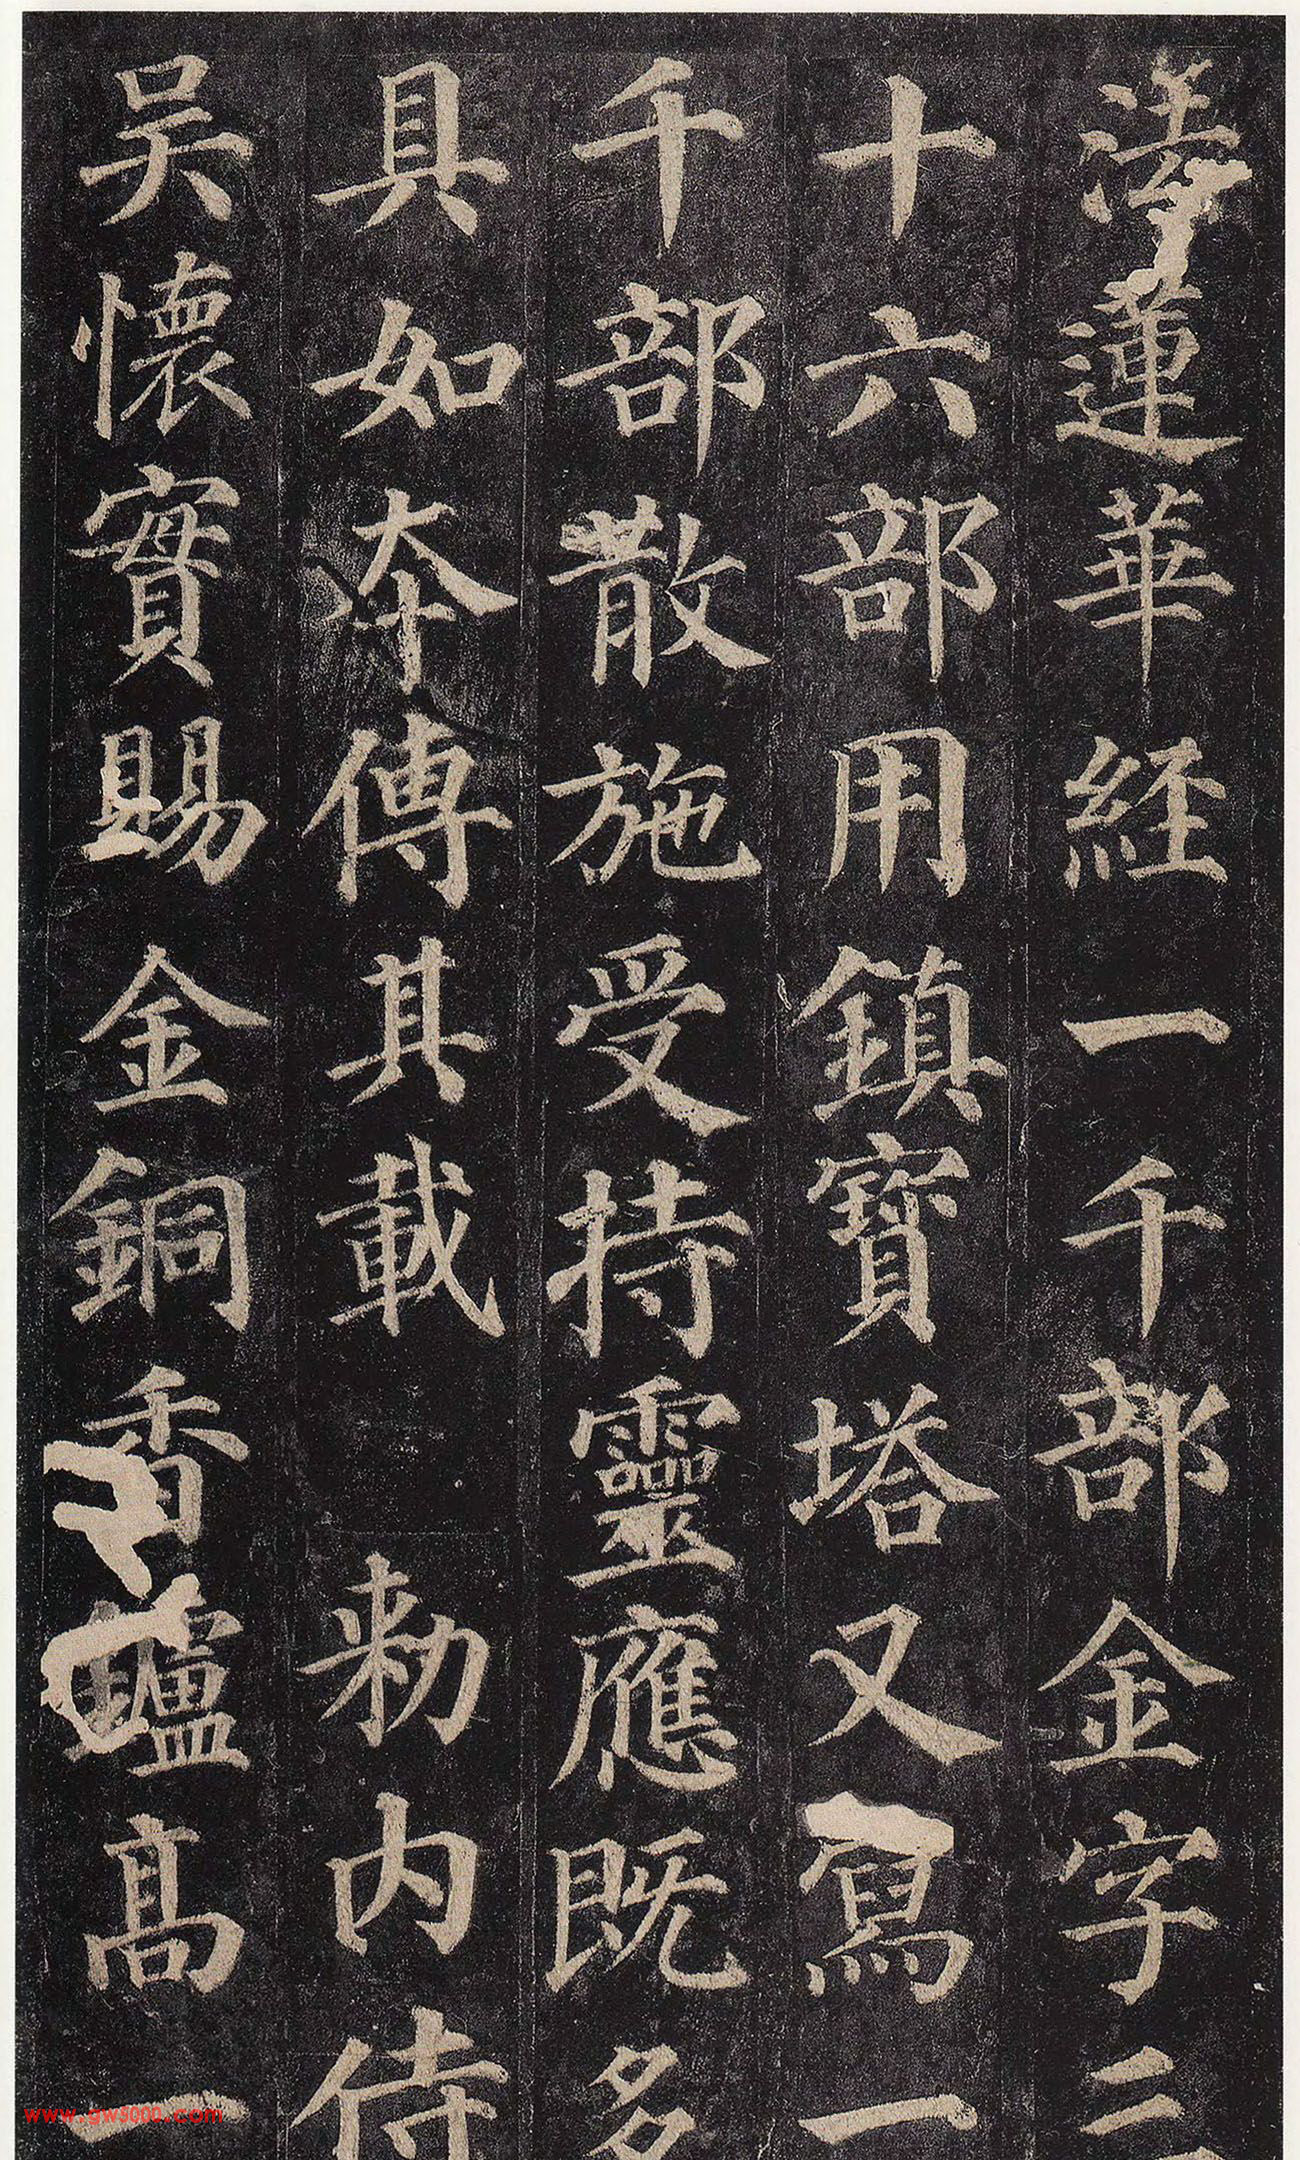 法蓮華經一千部金字三
十六部用鎮寶塔又寫一
千部散施受持靈應既多
具如本傳其載 勑内侍
吳懷實賜金銅香鑪高一
www.gw5000.com